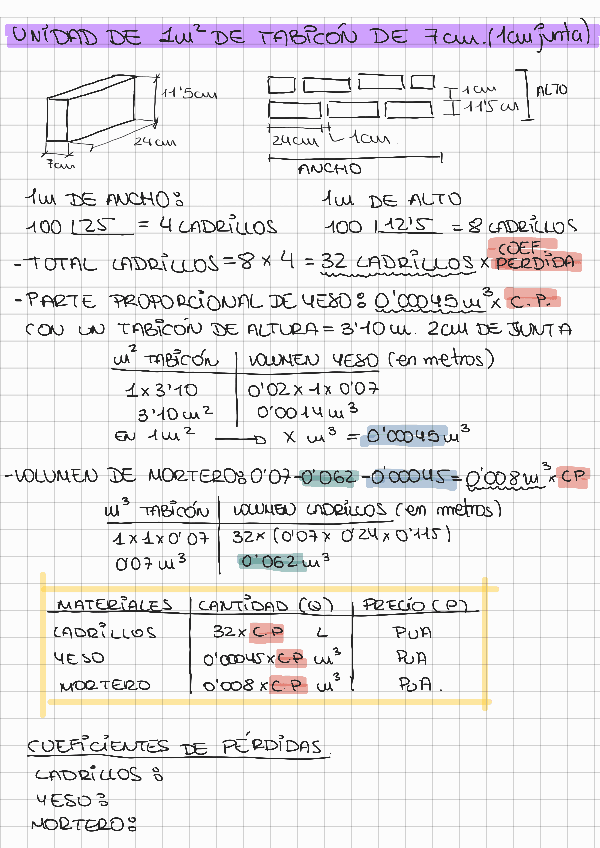 UNIDAD DE 1m² DE TABICÓN DE 7cm. (1cm junta)
11'5cm
24cm
7cm
1cm
11'5cm
ALTO
24cm
1cm
ANCHO
1m DE ANCHO:
100 | 25 = 4 LADRILLOS
1m DE ALTO
100 | 12'5 = 8 LADRILLOS
-TOTAL LADRILLOS = 8 x 4 = 32 LADRILLOS x COEF. PERDIDA
-PARTE PROPORCIONAL DE YESO: 0'00045m³ x C.P.
CON UN TABICÓN DE ALTURA = 3'10m. 2cm DE JUNTA
m² TABICÓN | VOLUMEN YESO (en metros)
1 x 3'10 | 0'02 x 1 x 0'07
3'10m² | 0'0014m³
EN 1m² → x m³ = 0'00045m³
-VOLUMEN DE MORTERO: 0'07-0'062-0'00045=0'008m³ x CP
m³ TABICÓN | VOLUMEN LADRILLOS (en metros)
1 x 1 x 0'07 | 32x (0'07 x 0'24 x 0'115)
0'07m³ | 0'062m³
MATERIALES | CANTIDAD (Q) | PRECIO (P)
LADRILLOS | 32 x C.P L | PUA
YESO | 0'00045 x CP m³ | PUA
MORTERO | 0'008 x C.P m³ | PUA.
COEFICIENTES DE PÉRDIDAS.
LADRILLOS:
YESO:
MORTERO: